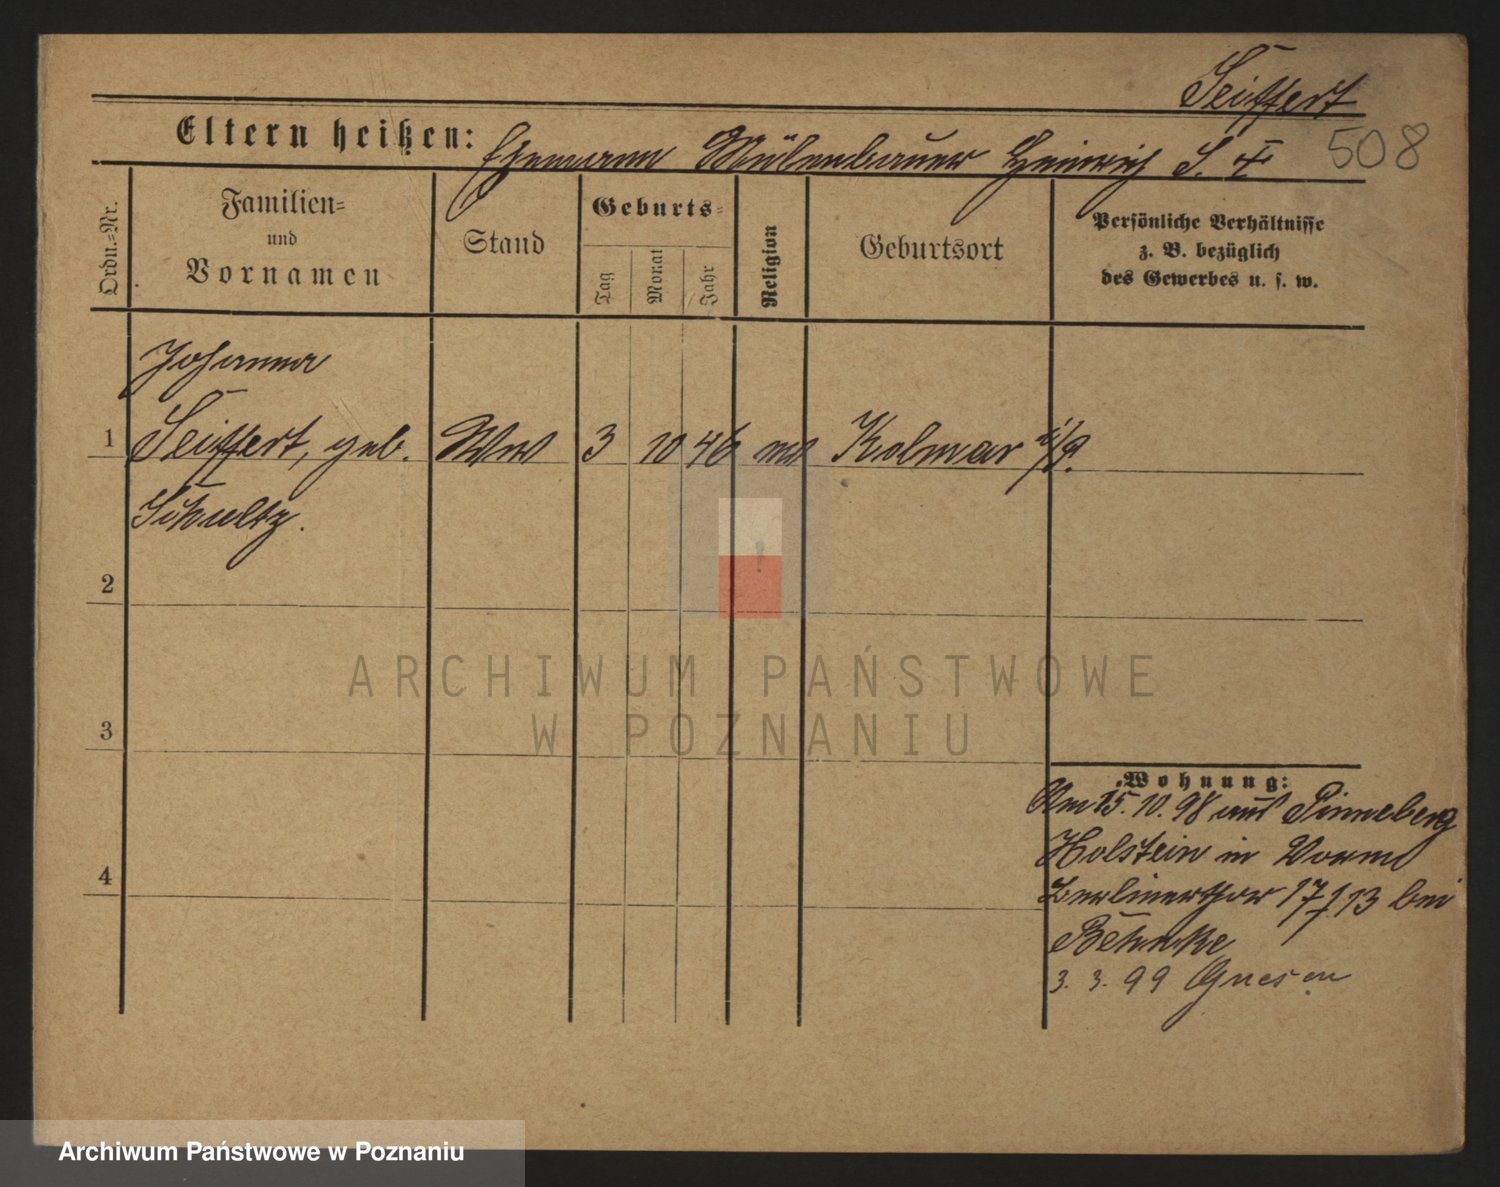 Seiffert
Eltern heißen: Ehemann Mülenbauer Heinrich S. †
508
Ordn.-Nr.
Familien-
und
Vornamen
Stand
Geburts-
Tag
Monat
Jahr
Religion
Geburtsort
Persönliche Verhältnisse
z. B. bezüglich
des Gewerbes u. s. w.
Johanna
1 Seiffert, geb. Ww 3 10 46 Kolmar i/P.
Schultz.
2
3
4
Wohnung:
Am 15. 10. 98 aus Pinneberg
Holstein in Vorm
Berlinerthor 17/13 bei
Behnke
3. 3. 99 Gnesen
ARCHIWUM PAŃSTWOWE
W POZNANIU
Archiwum Państwowe w Poznaniu